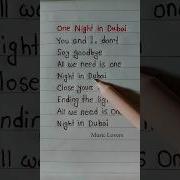 One Night in Dubai
You and I, don't
Say goodbye
All we need is one
Night in Dubai
Close your
Ending the lig
All we need is One
Night in Dubai
Music Lovers